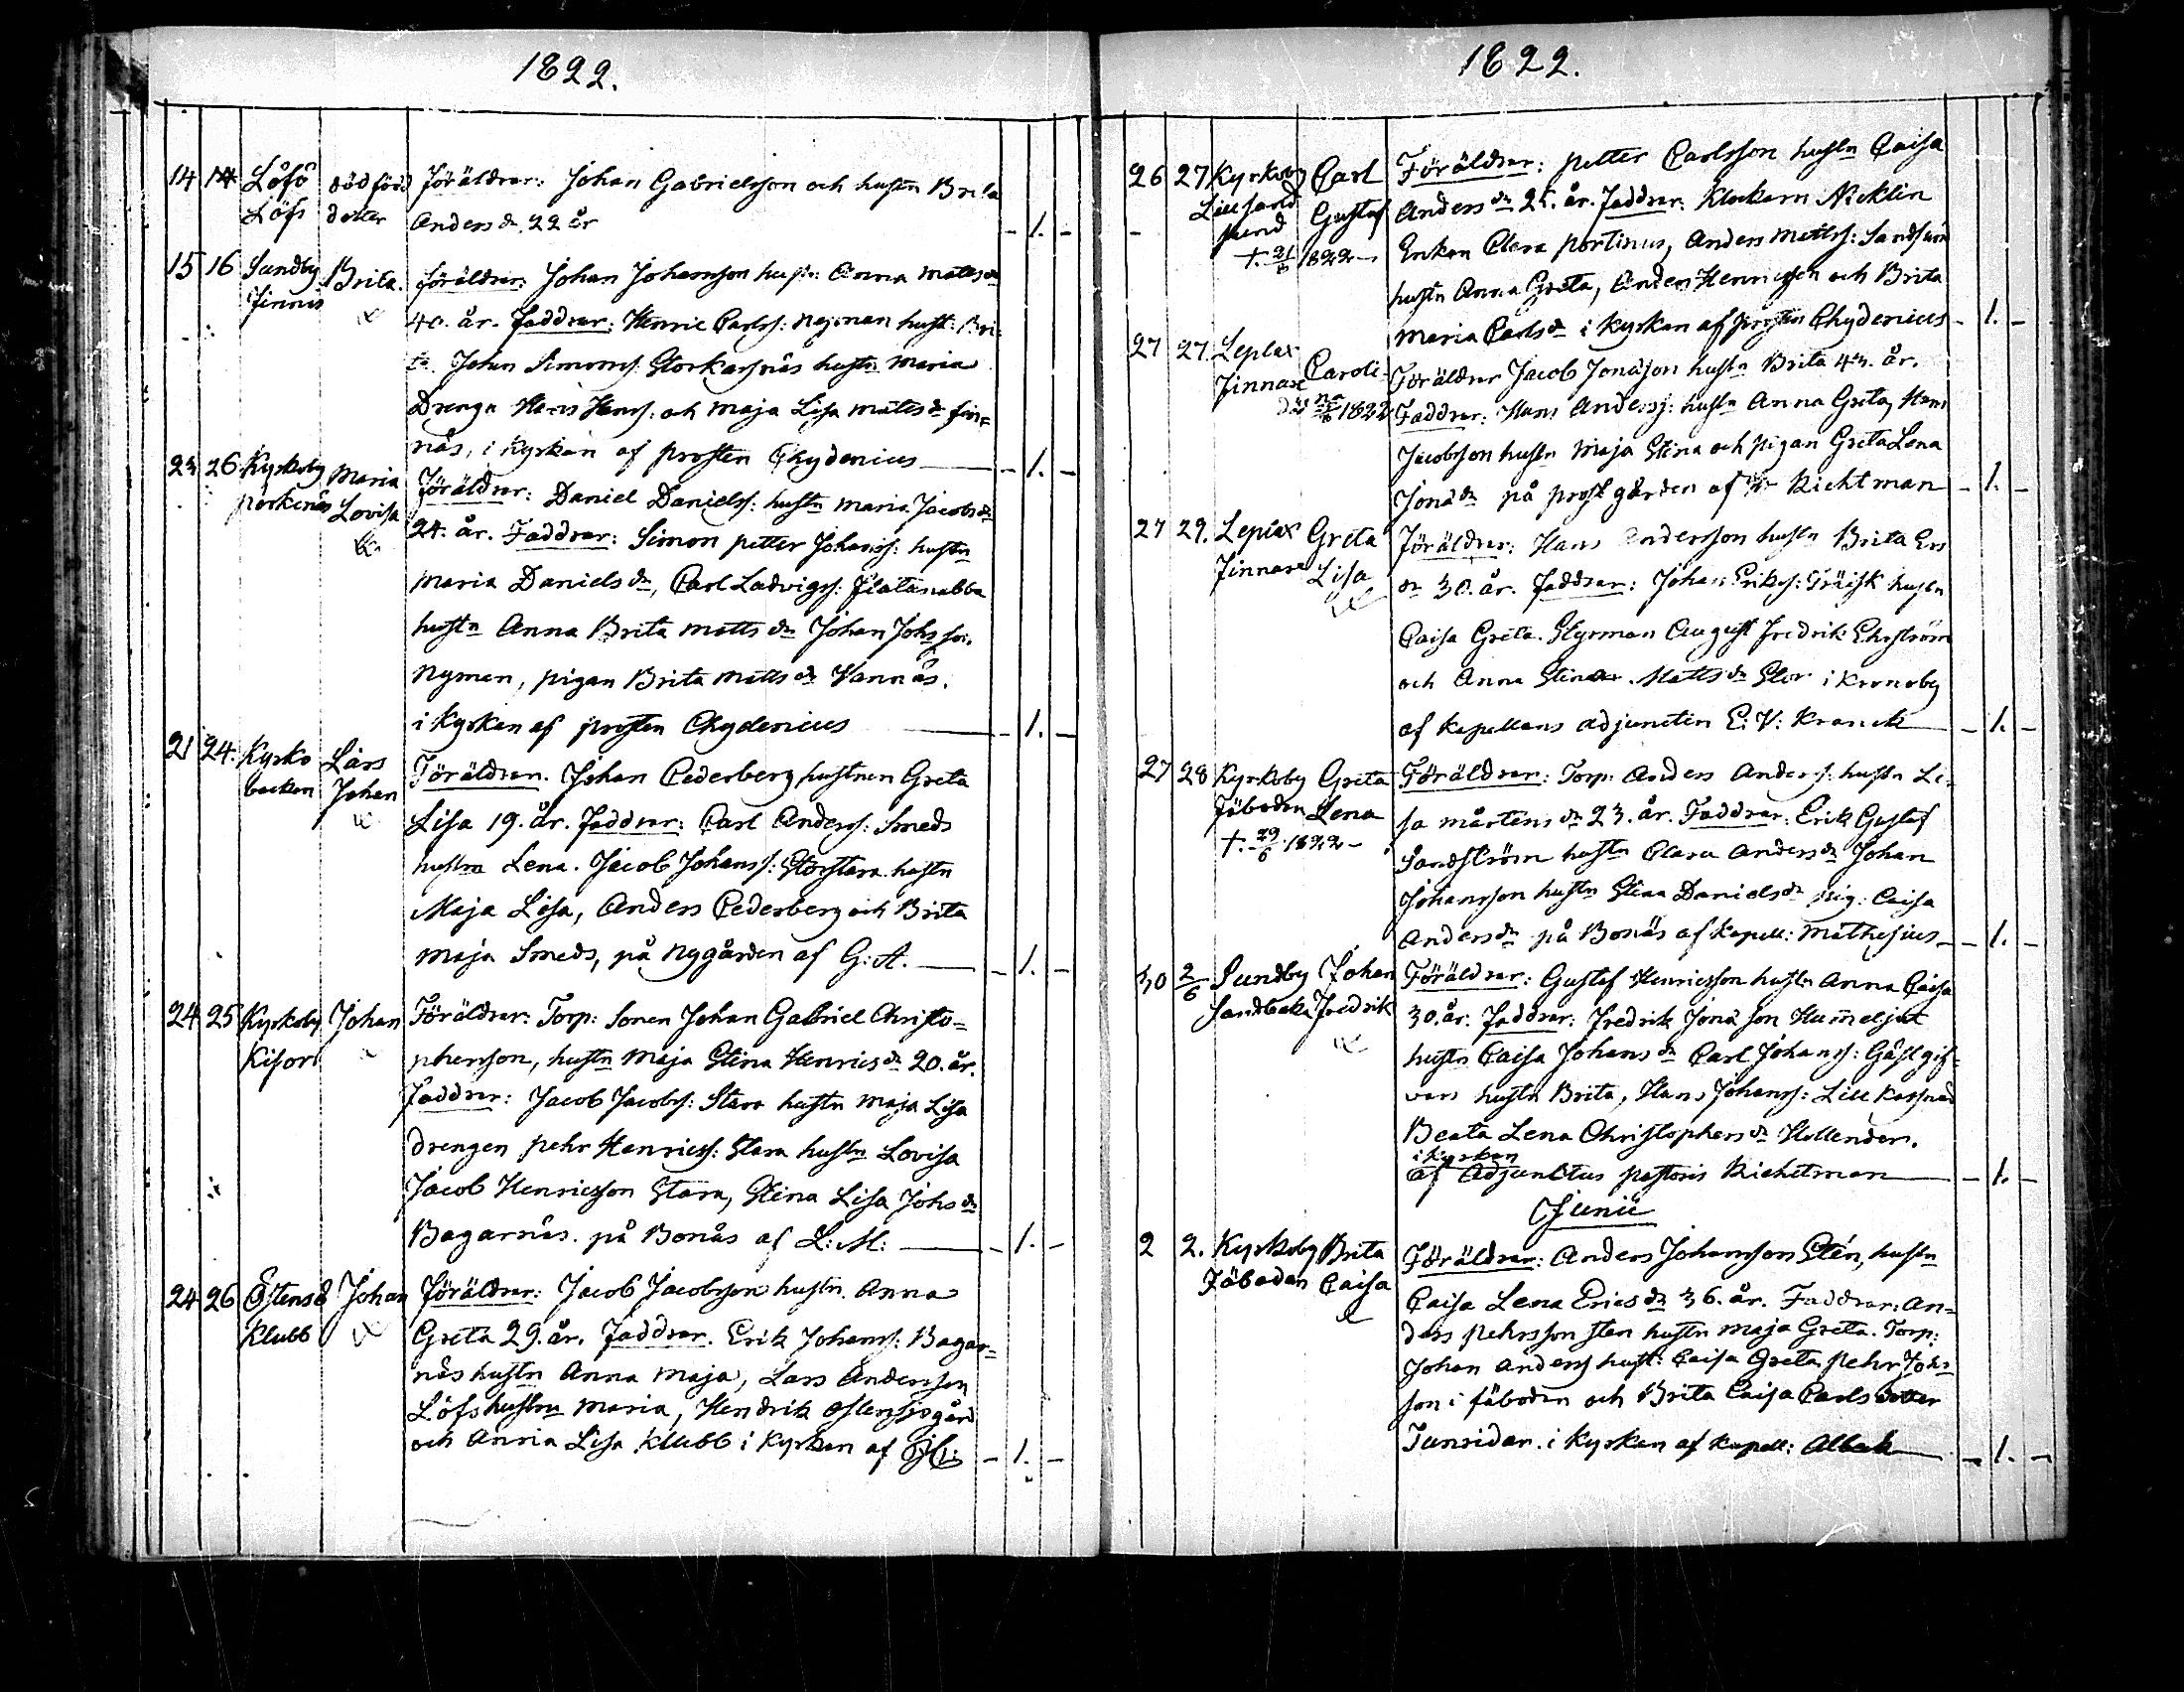 1822.
14 14 Löfö dödfödd Föräldrar: Johan Gabrielsson och hustn Brita
Löfs dotter Anders dr 22 år - 1. -
15 16 Sundby Brita. Föräldrar: Johan Johansson hustr: Anna Matts dr
Finnis 40. år. Faddrar: Henric Carlss: Nyman hust: Bri-
ta. Johan Simonss: Storkarsnäs hustn Maria
Drengn Hans Hanss: och Maja Lisa Matts dr Fin=
näs, i Kyrkan af Prosten Chydenius - 1. -
23 26 Kyrkoby Maria Föräldrar: Daniel Danielss: hustn Maria Jacobs dr
Porkenäs Lovisa 24. år. Faddrar: Simon Petter Johanss: hustn
Maria Daniels dr, Carl Ladvigss: Flatanabba
hustn Anna Brita Matts dr Johan Johsson.
Nyman, pigan Brita Matts dr Vannäs.
i Kyrkan af Prosten Chydenius - 1. -
21 24. Kyrko Lars Föräldrar. Johan Cederberg hustrun Greta
backen Johan Lisa 19. år. Faddrar: Carl Anderss: Smeds
hustru Lena. Jacob Johanss: Storstara hustn
Maja Lisa, Anders Cederberg och Brita
Maja Smeds, på Nygården af G: A. - 1. -
24 25 Kyrkoby Johan Föräldrar: Torp: Sonen Johan Gabriel Christo=
Kisor phersson, hustn Maja Stina Henrics dr 20. år.
Faddrar: Jacob Jacobss: Stara hustn Maja Lisa
drengen Pehr Henricss: Stara hustn Lovisa
Jacob Henricsson Stara, Stina Lisa Johs dr
Bagarnäs. på Bonäs af L: M: - 1. -
24 26 Östensö Johan Föräldrar: Jacob Jacobsson hustn. Anna
Klubb Greta 29. år. Faddrar. Erik Johanss: Bagar=
näs hustn Anna Maja, Lars Andersson
Löfs hustru Maria, Hendrik Östensjögård
och Anna Lisa Klubb i Kyrkan af - 1. -
1822.
26 27 Kyrkoby Carl Föräldrar: Petter Carlsson hustn Caisa
Lillsand Gustaf Anders dr 25. år. Faddrar: Klockarn Nicklin
sund Enkan Clara Portinus, Anders Mattss: Sandsund
+. 21/8 1822 - hustn Anna Greta, Anders Henricsson och Brita
Maria Carls dr i Kyrkan af Prosten Chydenius - 1. -
27 27. Leplax Caroli- Föräldrar Jacob Jonasson hustn Brita 43. år.
Finnare na Faddrar: Hans Anderss: hustn Anna Greta, Hans
1822 Jacobsson hustn Maja Stina och Pigan Greta Lena
Jona dr på Prostgården af Richtman - 1. -
27 29. Leplax Greta Föräldrar: Hans Andersson hustn Brita Ers
Finnare Lisa dr 30. år. Faddrar: Johan Erikss: Träisk hustn
Caisa Greta. Styrman August Fredrik Ehrström
och Anna Stina Matts dr Stor i Kronoby
af Kapellans adjuncten E: V: Kranck - 1. -
27 28 Kyrkoby Greta Föräldrar: Torp: Anders Anderss: hustn Li-
Fäboden Lena sa Mårtens dr 23. år. Faddrar: Erik Gustaf
+. 29/6 1822 - Sandström hustn Clara Anders dr Johan
Johansson hustn Stina Daniels dr Pig: Caisa
Anders dr på Bonäs af Kapell: Mathesius - 1. -
30 2/6 Sundby Johan Föräldrar: Gustaf Henricsson hustn Anna Caisa
Sandbacka Fredrik 30. år. Faddrar: Fredrik Jonasson Hum̄eljut
hustn Caisa Johans dr Carl Johanss: Gästgif-
vars hustn Brita, Hans Johanss: Lill Karsnäs
Beata Lena Christophers dr Hollender.
i Kyrkan
af Adjunctus Pastoris Richtman - 1. -
Junii
2 2. Kyrkoby Brita Föräldrar: Anders Johansson Stén, hustn
Fäbodan Caisa Caisa Lena Erics dr 36. år. Faddrar: An=
ders Pehrsson Sten hustn Maja Greta. Torp:
Johan Anderss hust: Caisa Greta Pehr Johs
son i Fäboden och Brita Caisa Carls dotter
i Kyrkan af Kapell: Alback - 1. -